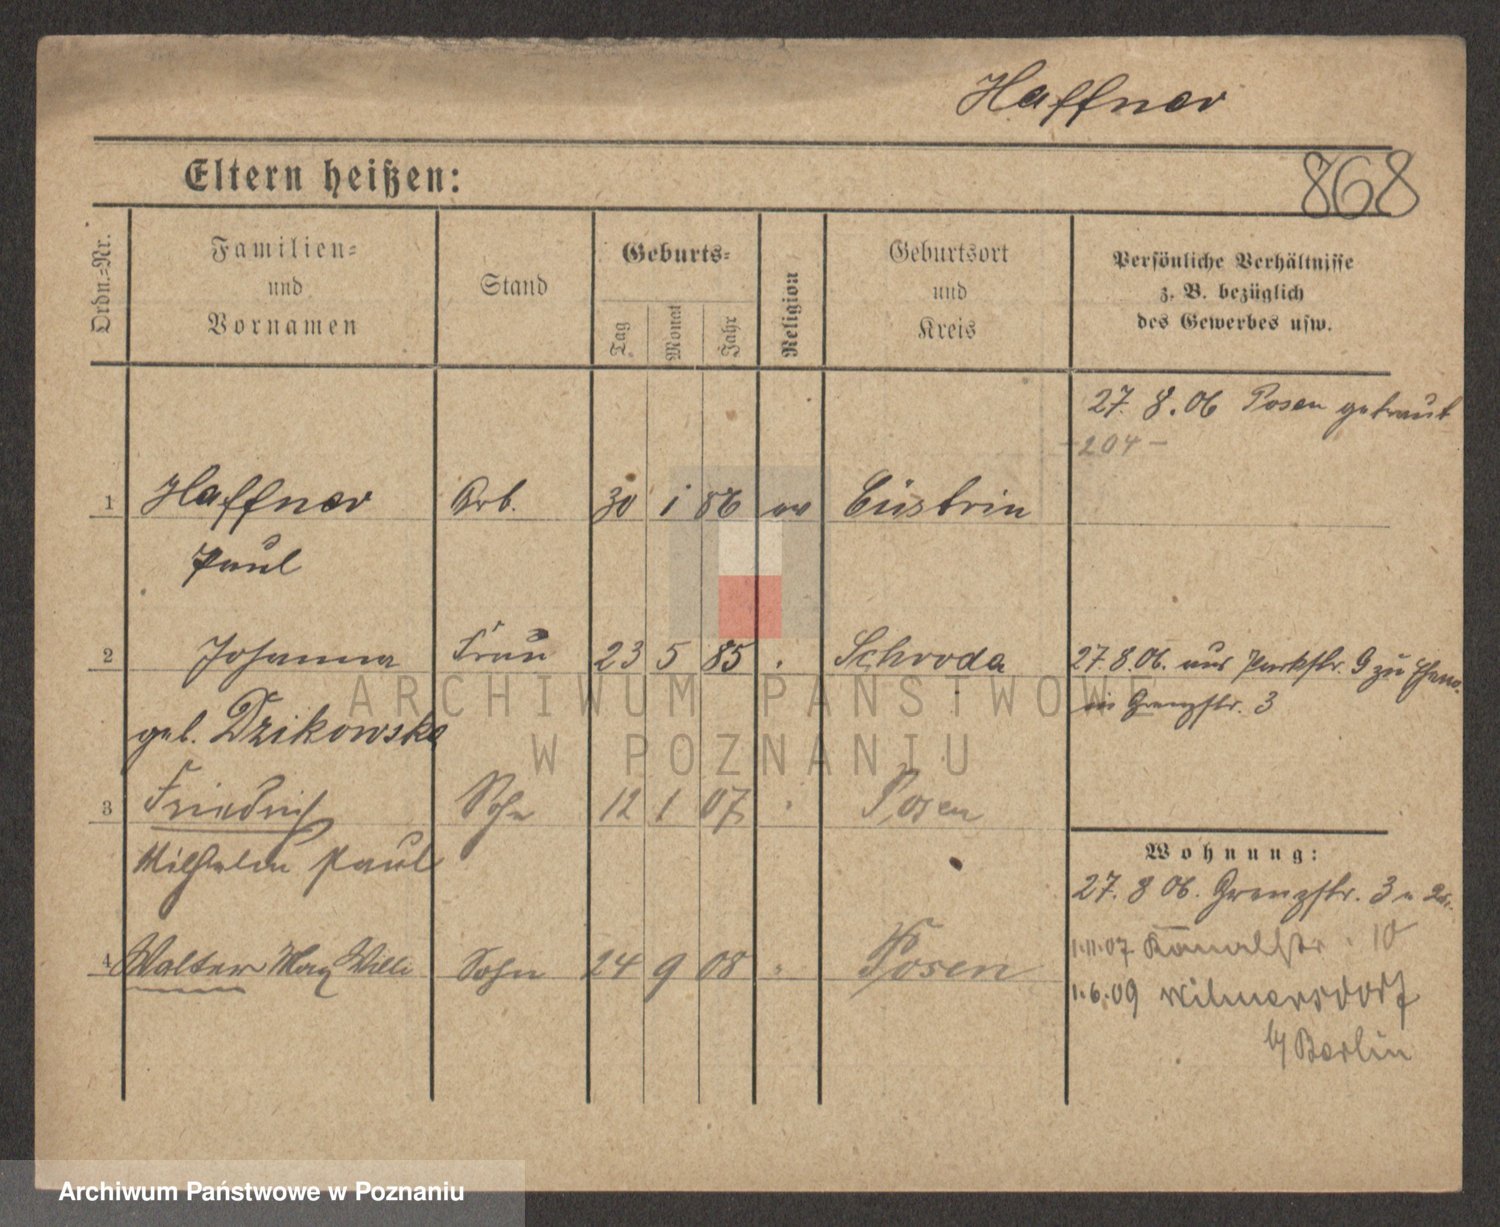 Haffner
Eltern heißen:
868
Ordn.-Nr.
Familien-
und
Vornamen
Stand
Geburts-
Tag
Monat
Jahr
Religion
Geburtsort
und
Kreis
Persönliche Verhältnisse
z. B. bezüglich
des Gewerbes usw.
27. 8. 06 Posen getraut
-204-
1 Haffner Arb. 30 1 86 ev Cüstrin
Paul
2 Johanna Frau 23 5 85 Schroda 27.8.06. aus Parkstr. 9 zu
in Grenzstr. 3
geb. Dzikowska
3 Friedrich Sohn 12 1 07 Posen
Wilhelm Paul
Wohnung:
27. 8 06. Grenzstr. 3
4 Walter Max Willi Sohn 24 9 08 Posen
1.11.07 Kanalstr. 10
1.6.09 Wilmersdorf
b/Berlin
ARCHIWUM PAŃSTWOWE
W POZNANIU
Archiwum Państwowe w Poznaniu